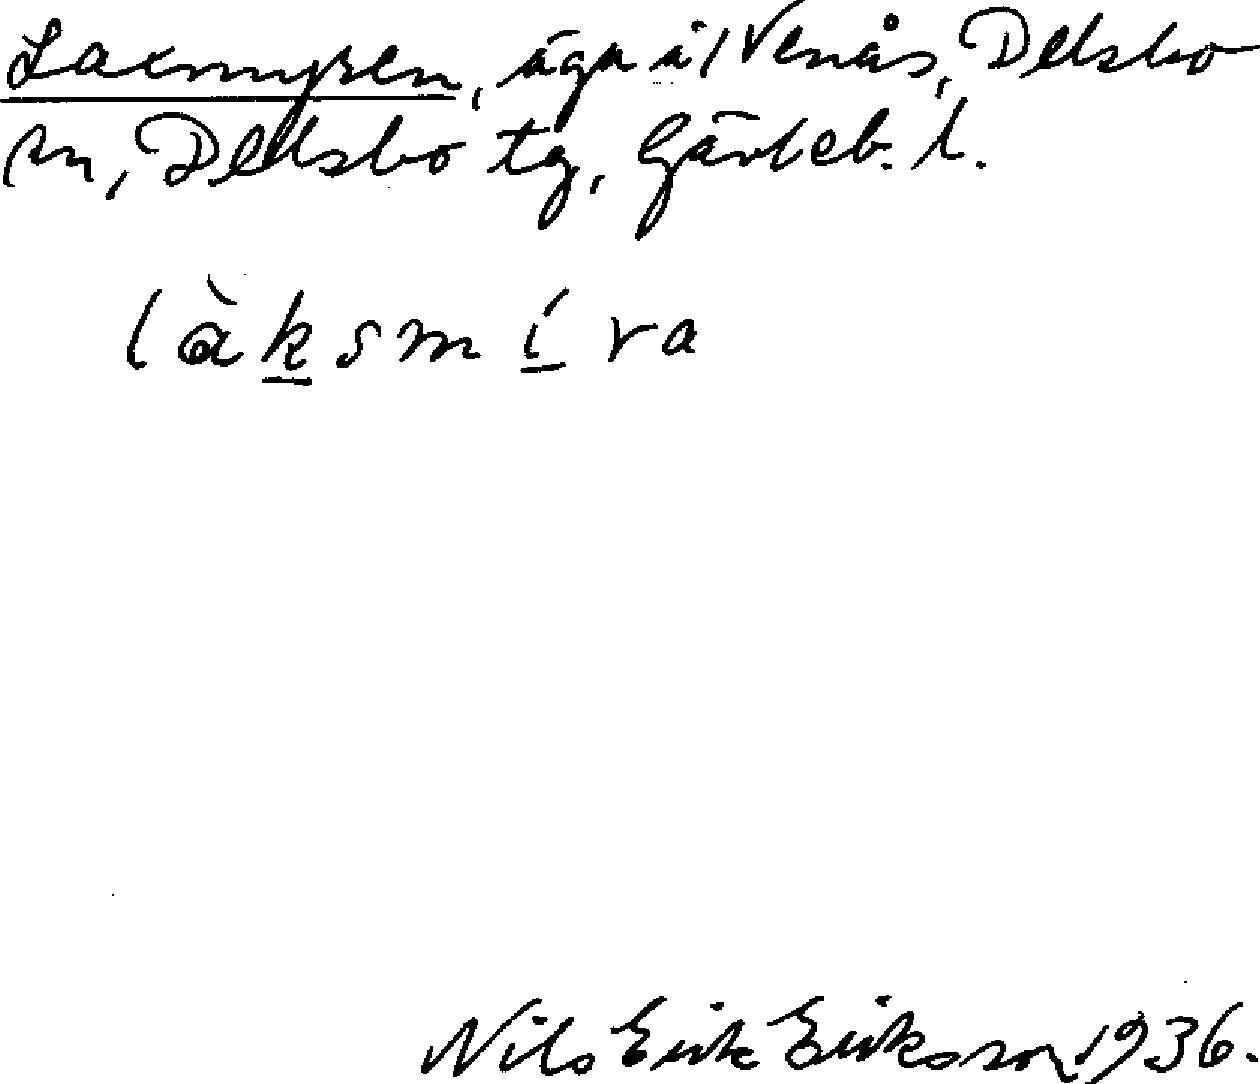 Laxmyren, äga å Venås, Delsbo
sn, Delsbo tg, Gävleb. l.
làksmíra
Nils Erik Eriksson 1936.